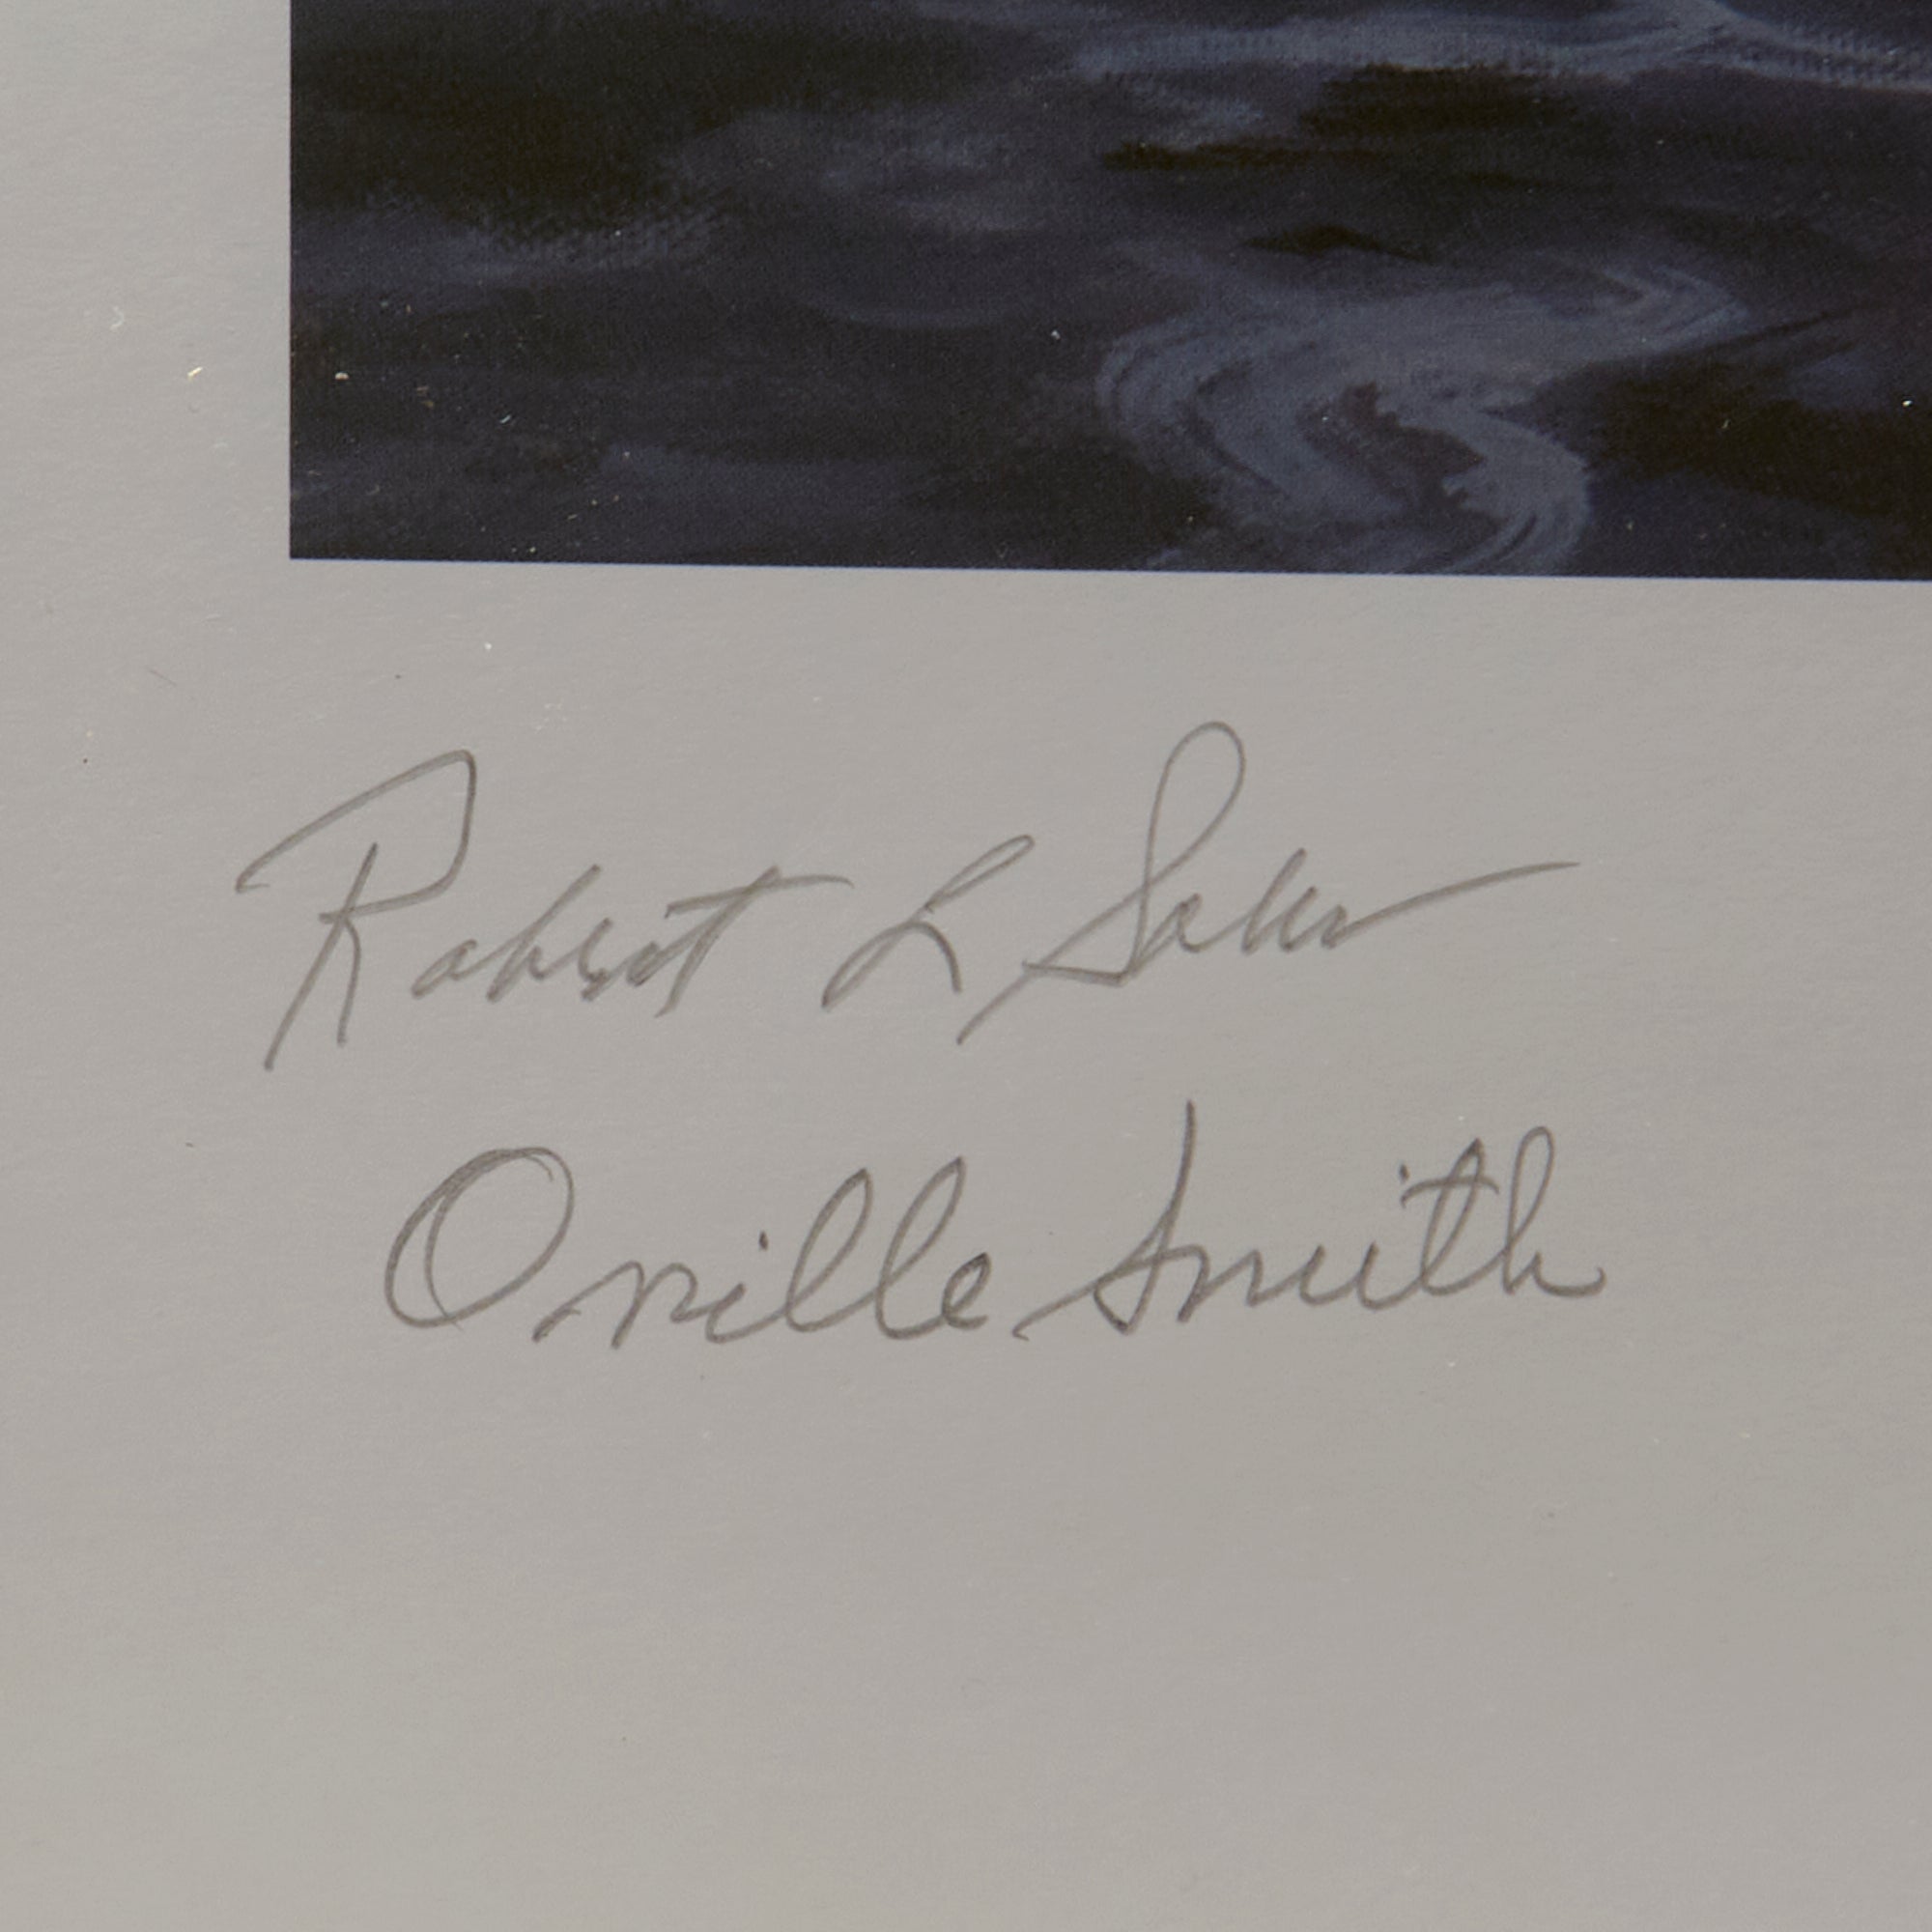 Robert L
Orville Smith